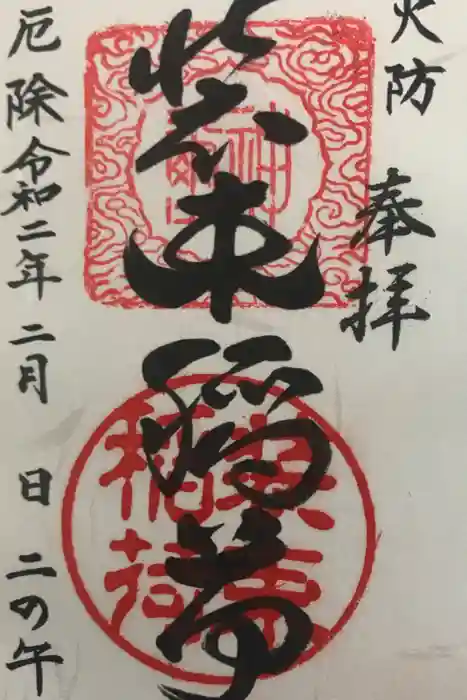 火防 奉拝
装束稲荷
厄除 令和二年 二月 日 二の午
稲荷